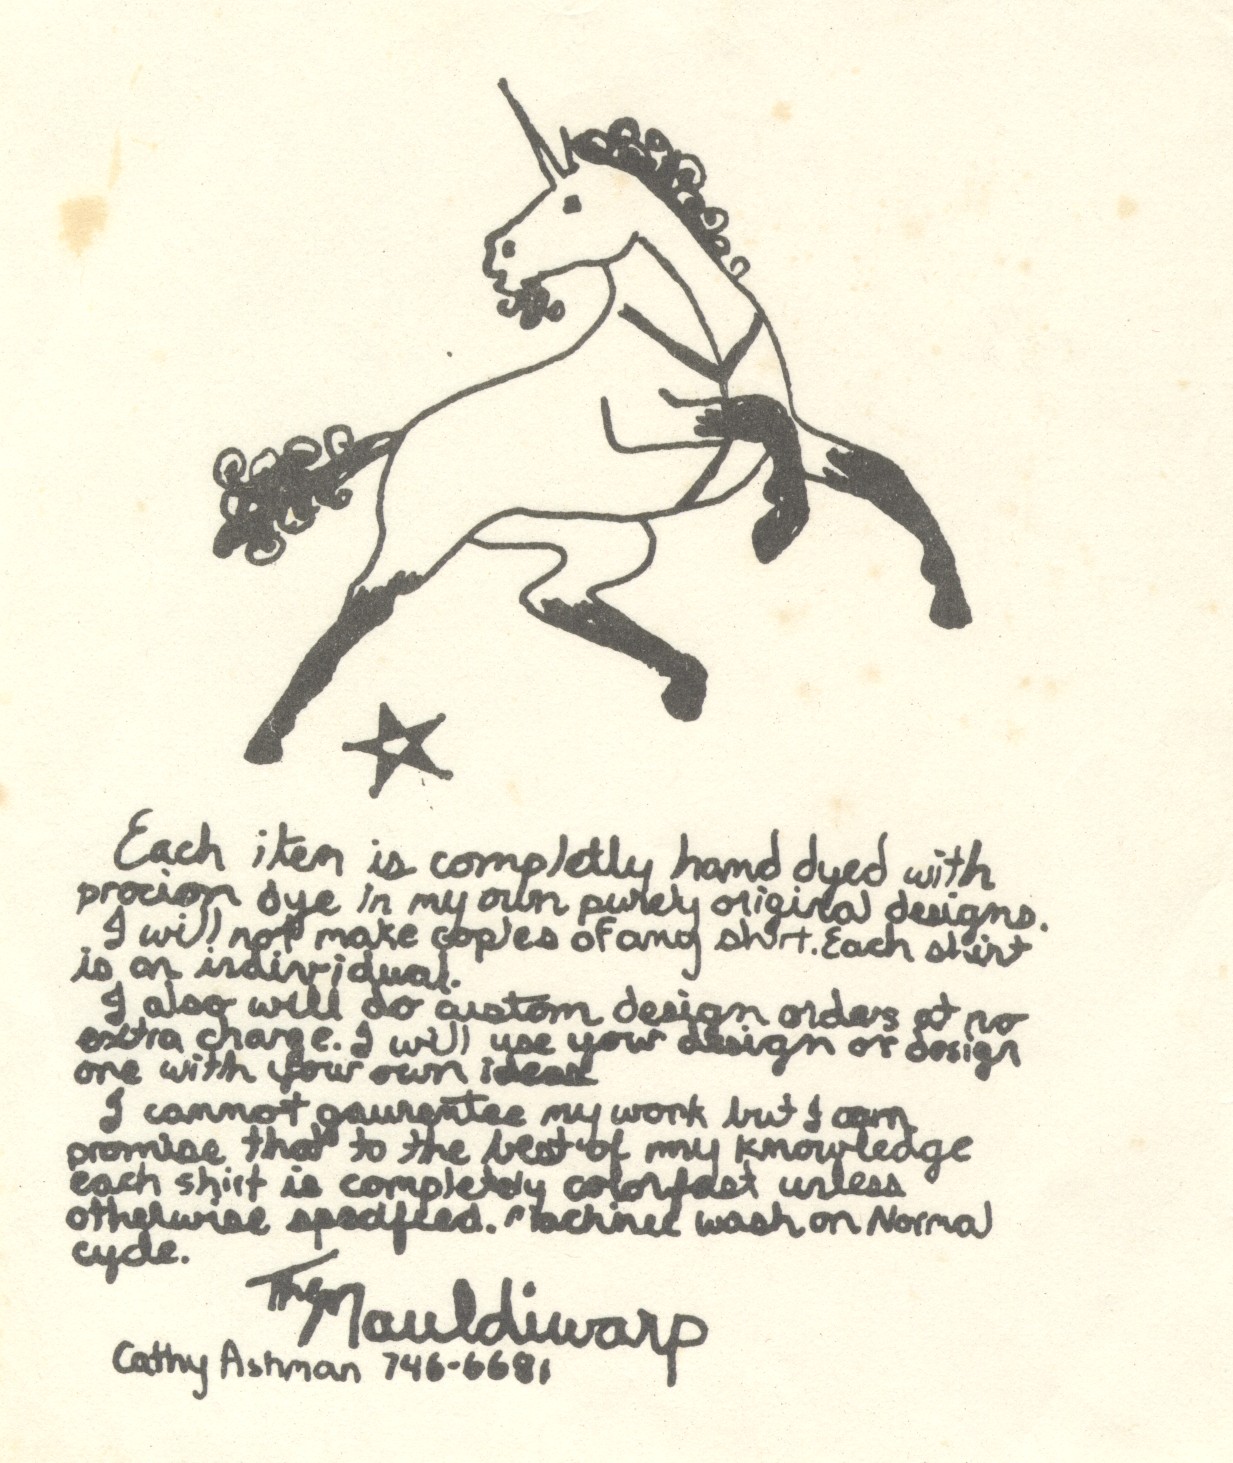 Each item is completly hand dyed with
procion dye in my own purely original designs.
I will not make copies of any shirt. Each shirt
is an individual.
I also will do custom design orders at no
extra charge. I will use your design or design
one with your own ideas
I cannot gaurentee my work but I can
promise that to the best of my knowledge
each shirt is completely colorfast unless
otherwise specified. Machinee wash on Normal
cycle.
The Mauldiwarp
Cathy Ashman 746-6681